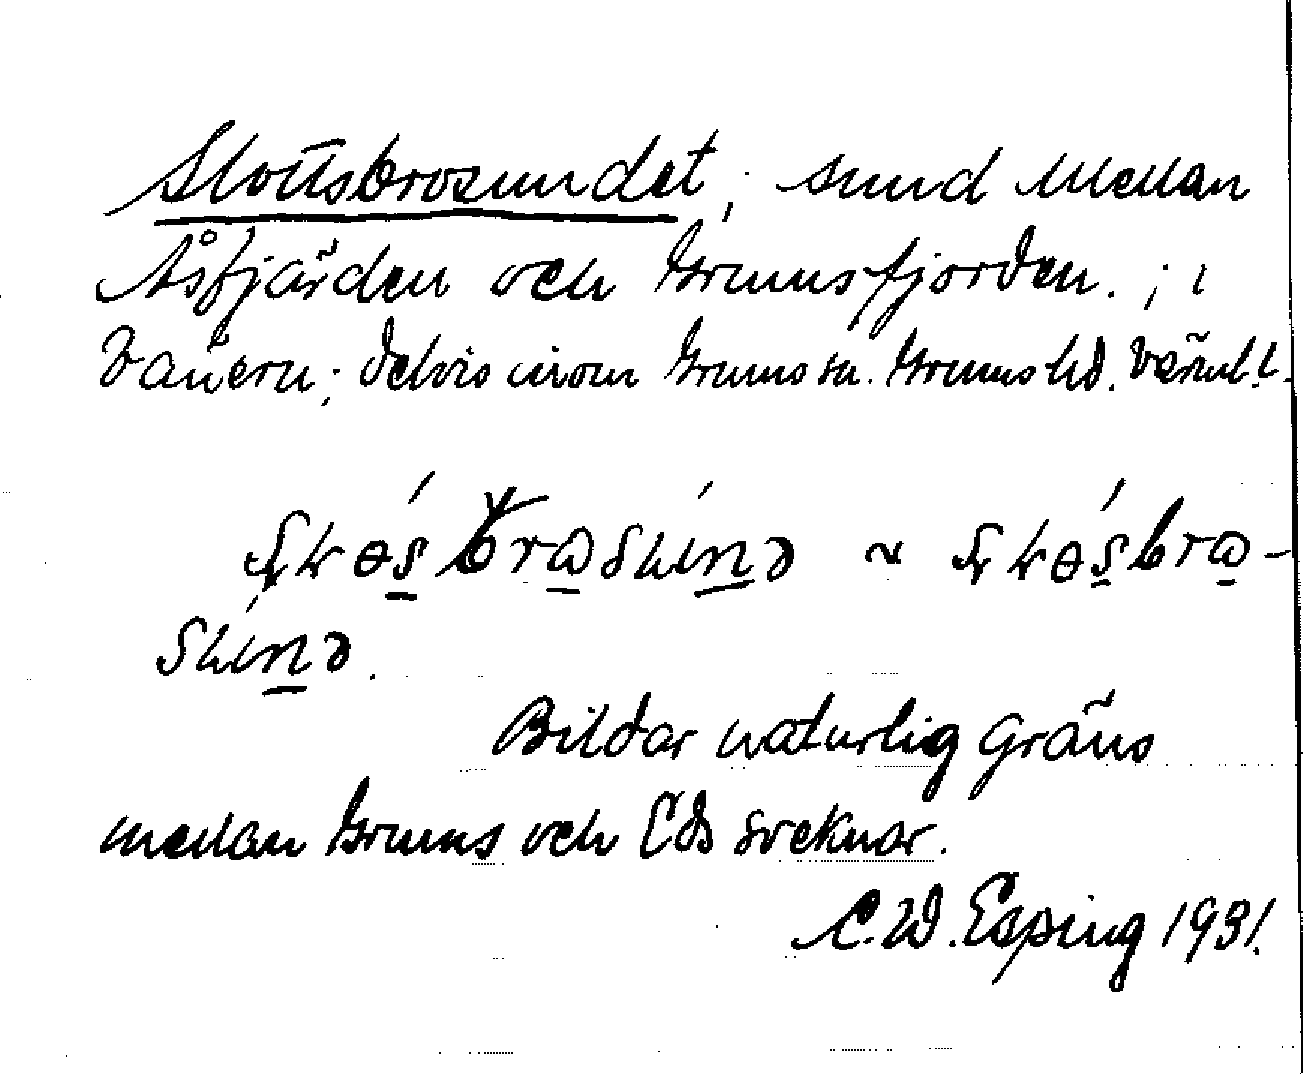 Slottsbrosundet, sund mellan
Åsfjärden och Grumsfjorden. ; i
Vänern; delvis inom Grums sn. Grums hd. Värml. l.
Bildar naturlig gräns
mellan Grums och Eds socknar.
C. W. Esping 1931.